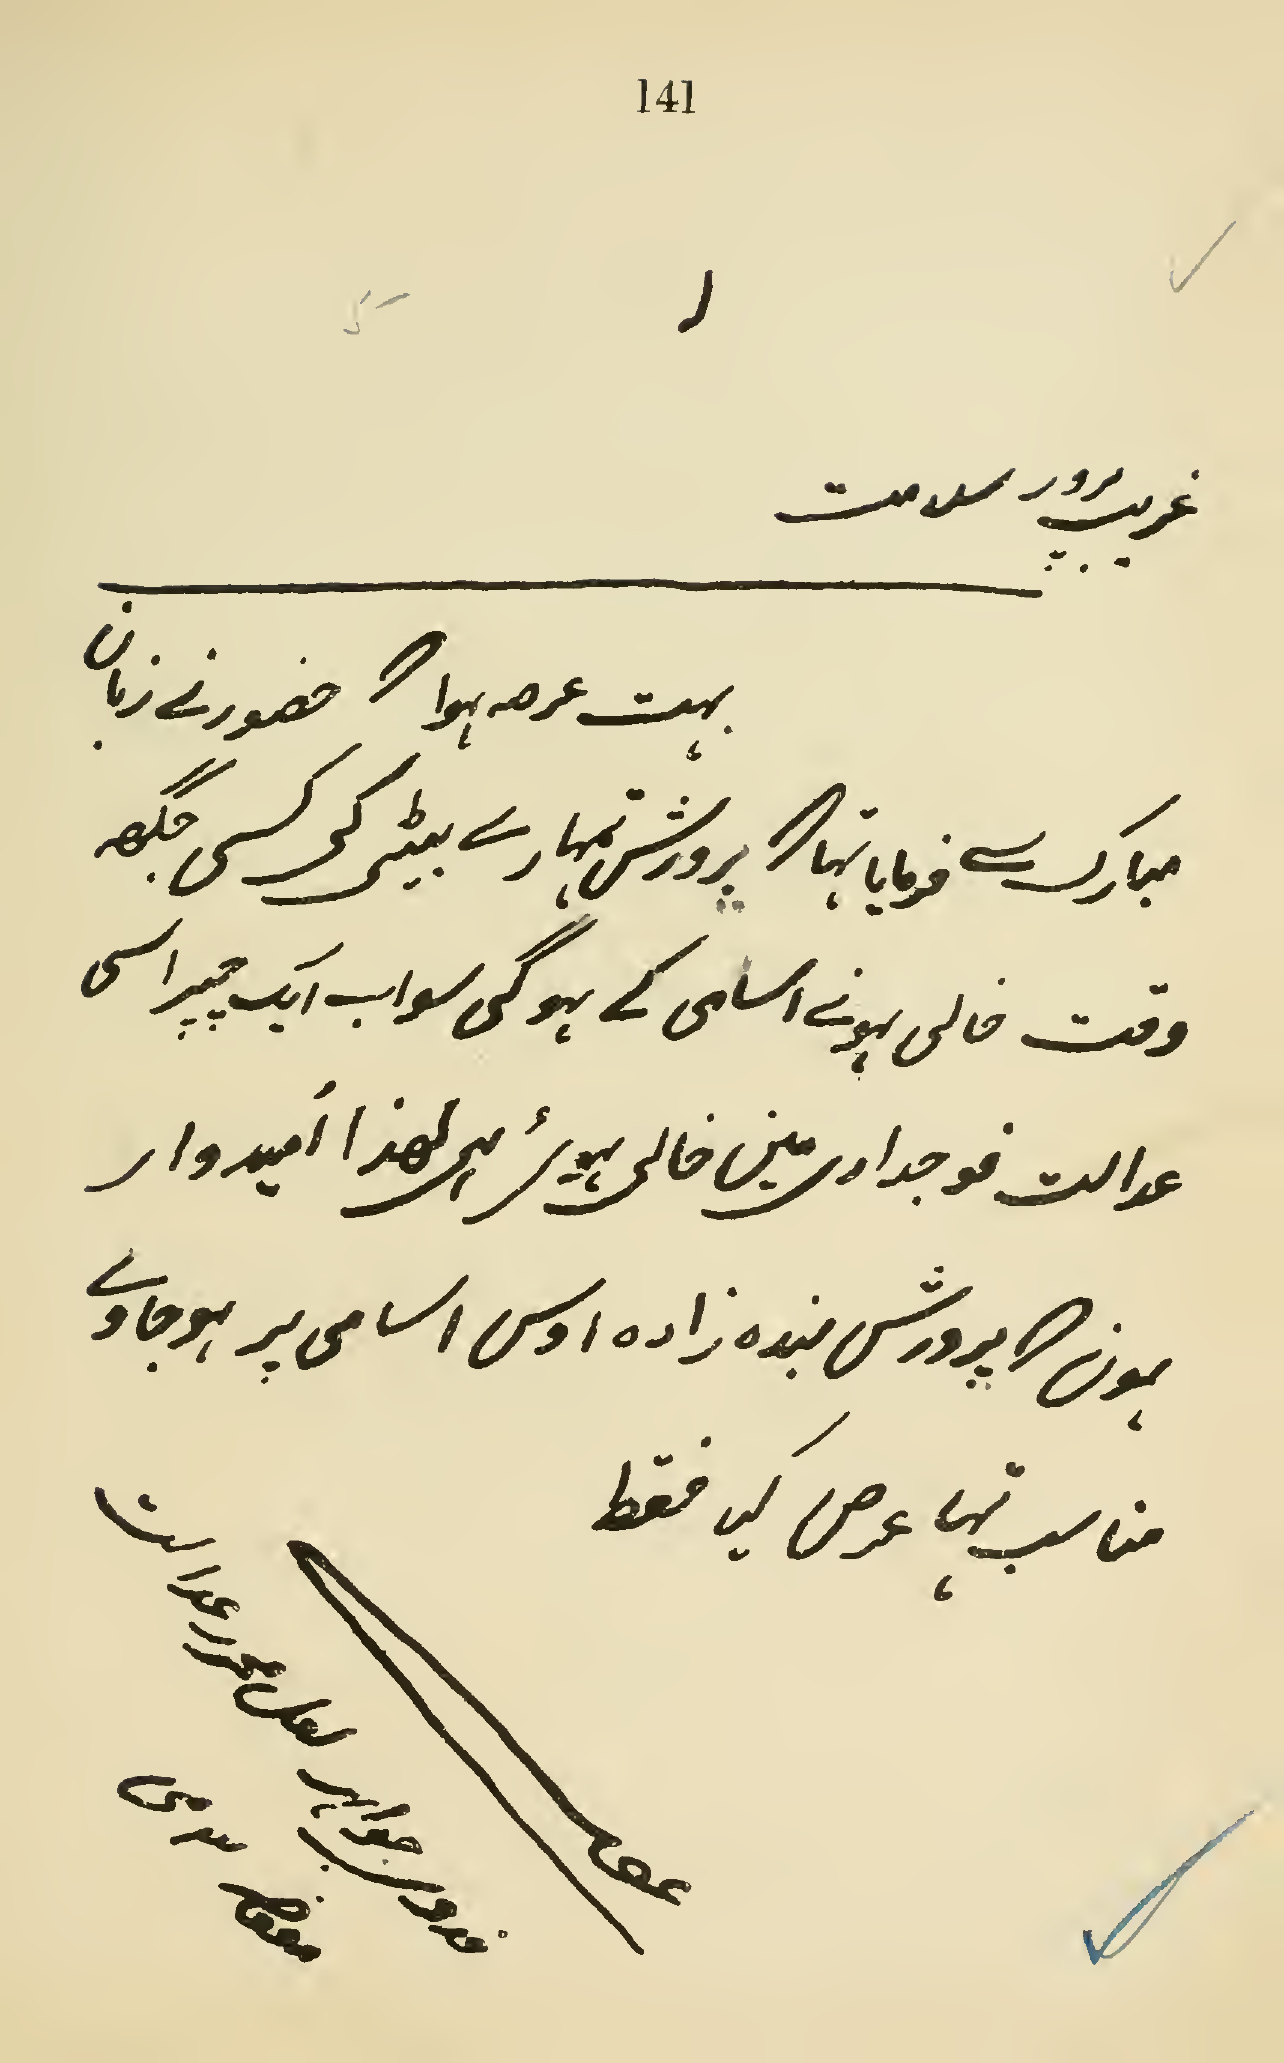 141
۱
غریب پرور سلامت
بہت عرصہ ہوا کہ حضور نے زبان
مبارک سے فرمایا تہا کہ پرورش تمہارے بیٹی کی کسی جگھہ
وقت خالی ہونے اسامی کے ہوگی سو اب ایک چپراسی
عدالت فوجداری مین خالی ہوئی ہی لھذا اُمیدوار
ہون کہ پرورش بندہ زادہ اوس اسامی پر ہوجاوے
مناسب تہا عرض کیا فقط
عرضے
فدوی جواہر لعل محرر عدالت